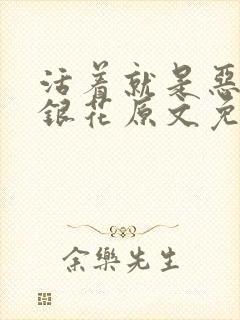 活着就是惡
銀花原文免
余樂先生